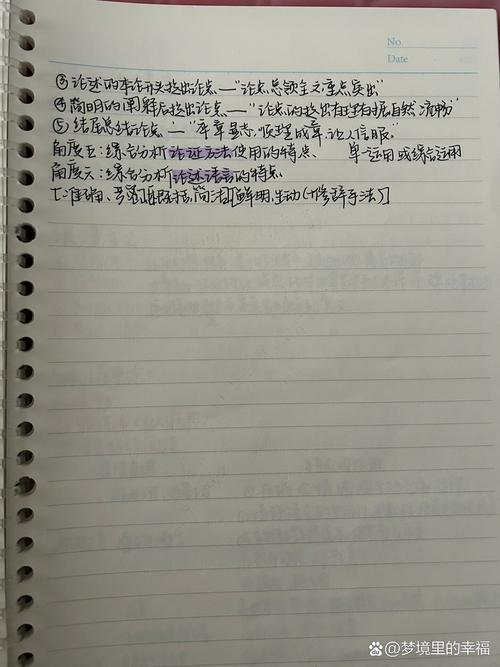 No.
Date
③论述的本论开头提出论点—"论点总领全文重点突出"
④简明的阐释后提出论点—"论点的提出有理有据自然流畅"
⑤结尾总结论点—"卒章显志,顺理成章,让人信服"
角度五:综合分析论证方法使用的特点、 单一运用或综合运用
角度六:综合分析论述语言的特点.
[准确、严密][概括,简洁][鲜明,生动(修辞手法)]
@梦境里的幸福